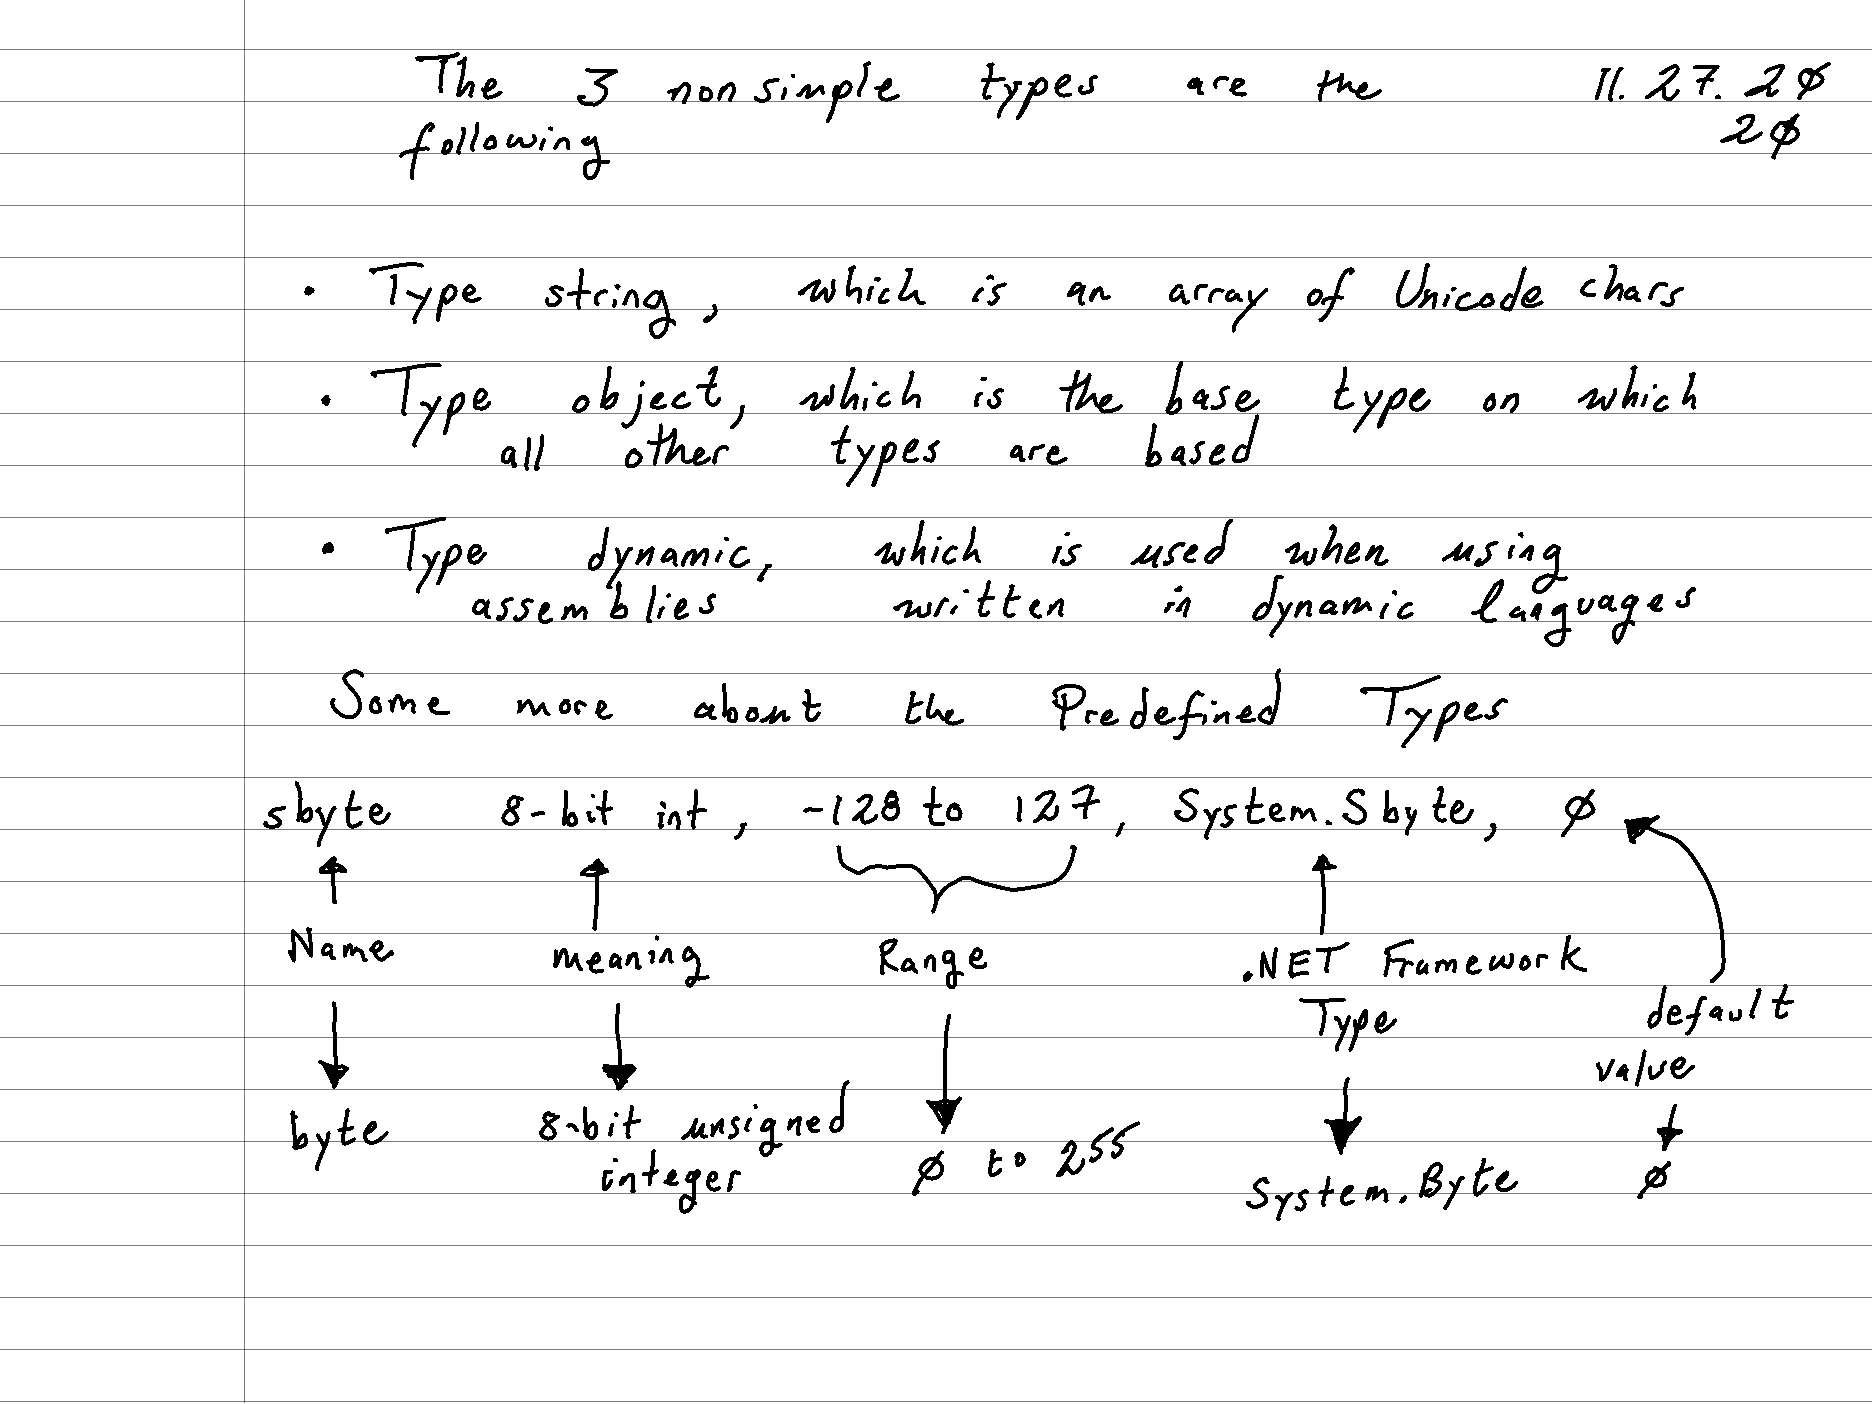 The 3 nonsimple types are the 11.27.2Ø
following 2Ø
• Type string, which is an array of Unicode chars
• Type object, which is the base type on which
all other types are based
• Type dynamic, which is used when using
assemblies written in dynamic languages
Some more about the Predefined Types
sbyte 8-bit int, -128 to 127, System.Sbyte, Ø
Name meaning Range .NET Framework
Type default
value
byte 8-bit unsigned
integer Ø to 255 System.Byte Ø